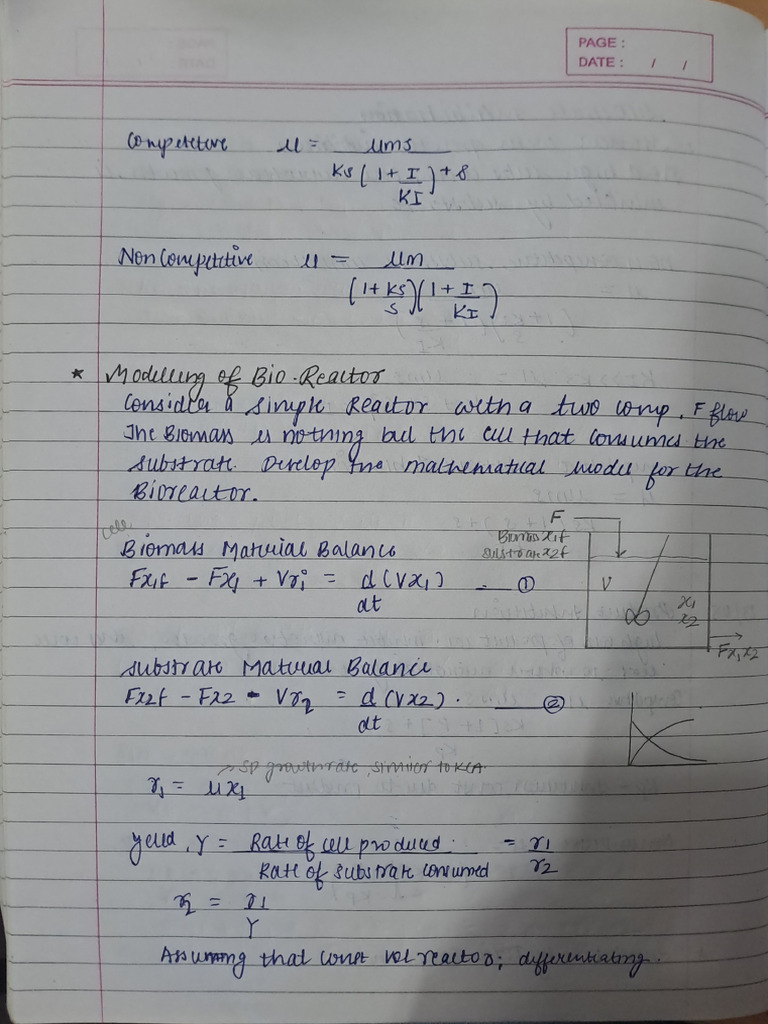 PAGE :
DATE : / /
Competitive μ = μms
Ks (1 + I/KI) + S
Non Competitive μ = μm
(1 + Ks/S) (1 + I/KI)
* Modelling of Bio-Reactor
Consider a simple Reactor with a two comp, F flow
The Biomass is nothing but the cell that consumes the
substrate. Develop the mathematical model for the
Bioreactor.
cell
Biomass Material Balance
Fx1f - Fx1 + Vr1 = d(Vx1)/dt - ①
F
Biomass x1f
substrate x2f
V
x1
x2
Fx1x2
Substrate Material Balance
Fx2f - Fx2 - Vr2 = d(Vx2)/dt . — ②
sp growth rate, similar to KCA
r1 = μx1
Yield, Y = Rate of cell produced / Rate of substrate consumed = r1/r2
r2 = r1/Y
Assuming that const vol reactor; differentiating.